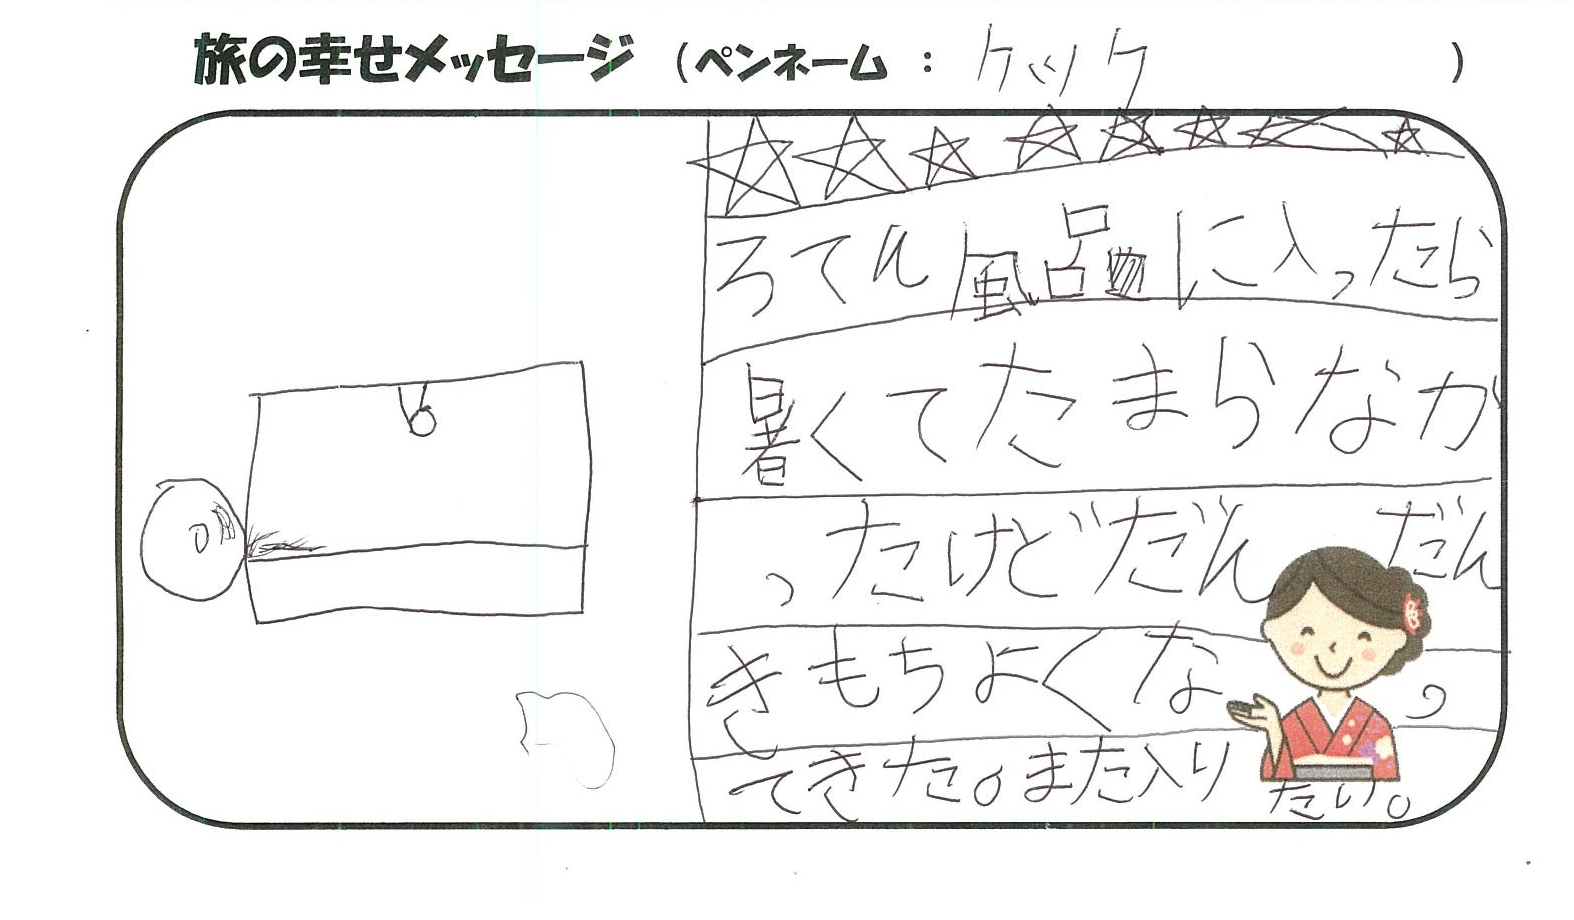 旅の幸せメッセージ (ペンネーム : ケック )
ろてん風呂に入ったら
暑くてたまらなか
ったけどだんだん
きもちよくなっ
てきた。また入り
たい。